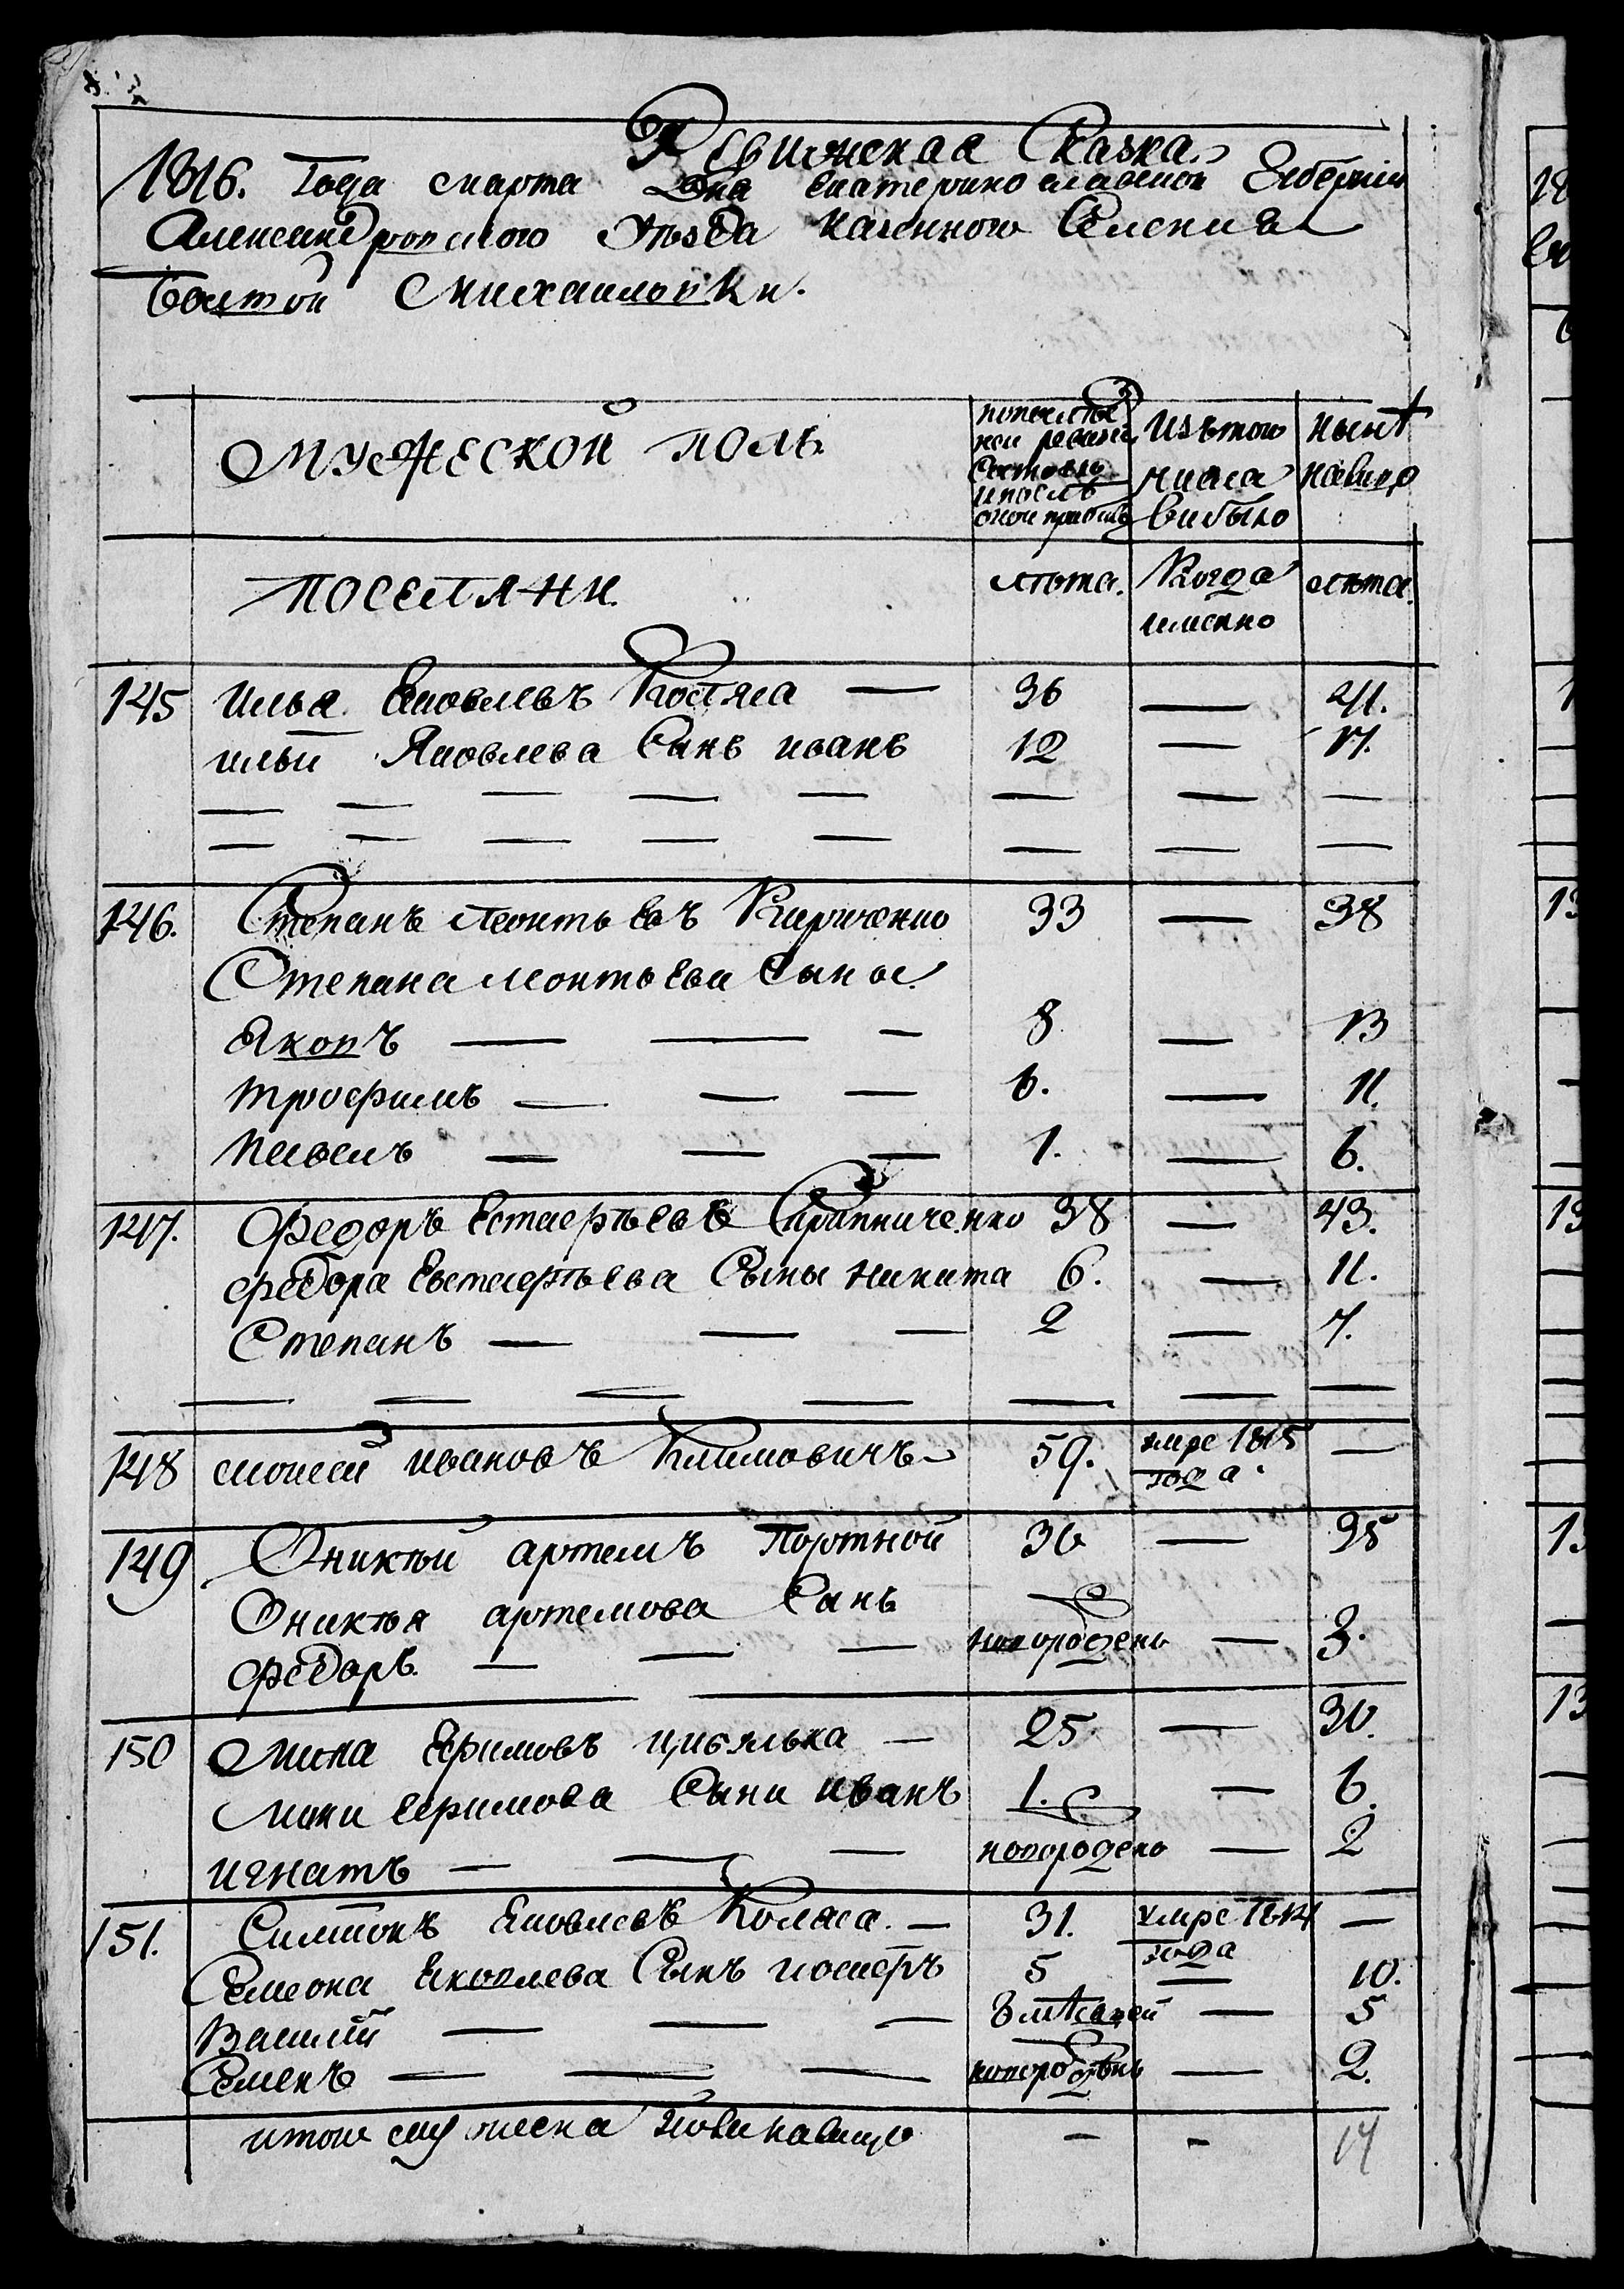 Ревижская Сказка
1816. Года марта Дня Екатеринославской Губернии
Александровского Уезда Казенного Селения
Болтой Михаиловки.
мужеской полъ
по последней ревизіи состояло и после оной прибыло
Изътого числа выбыло
ныне налицо
поселяни
лѣта.
Когда именно
лета.
145 илья Яковлевъ Коляса — 36 — 41.
ильи Яковлева Сынъ иванъ 12 — 17.
146. Степанъ леонтьевъ Кириченко 33 — 38
Степана леонтьева Сыны
Яковъ — 8 — 13
трофимъ — 6. — 11.
павелъ — 1. — 6.
147. Федоръ Естафьевъ 38 — 43.
федора Евстафьева Сыны никита 6. — 11.
Степанъ — 2 — 7.
148 моисей ивановъ Климовичъ 59. умре 1815 года. —
149 Оникѣй артемъ Портной 30 — 35
Оникѣя артемова Сынъ
федоръ. — новорожденъ — 3.
150 мина Ефимовъ цибулька — 25 — 30.
мини ефимова Сыни иванъ 1. — 6.
игнатъ — новорожденъ — 2
151. Симионъ Яковлевъ Коляса. — 31. умре 1814 года —
Семеона Яковлева Сынъ иосифъ 5 — 10.
Василій — 3 месяцей — 5
Семенъ — новорожденъ — 2.
итого мужеска полу налицо — - 17